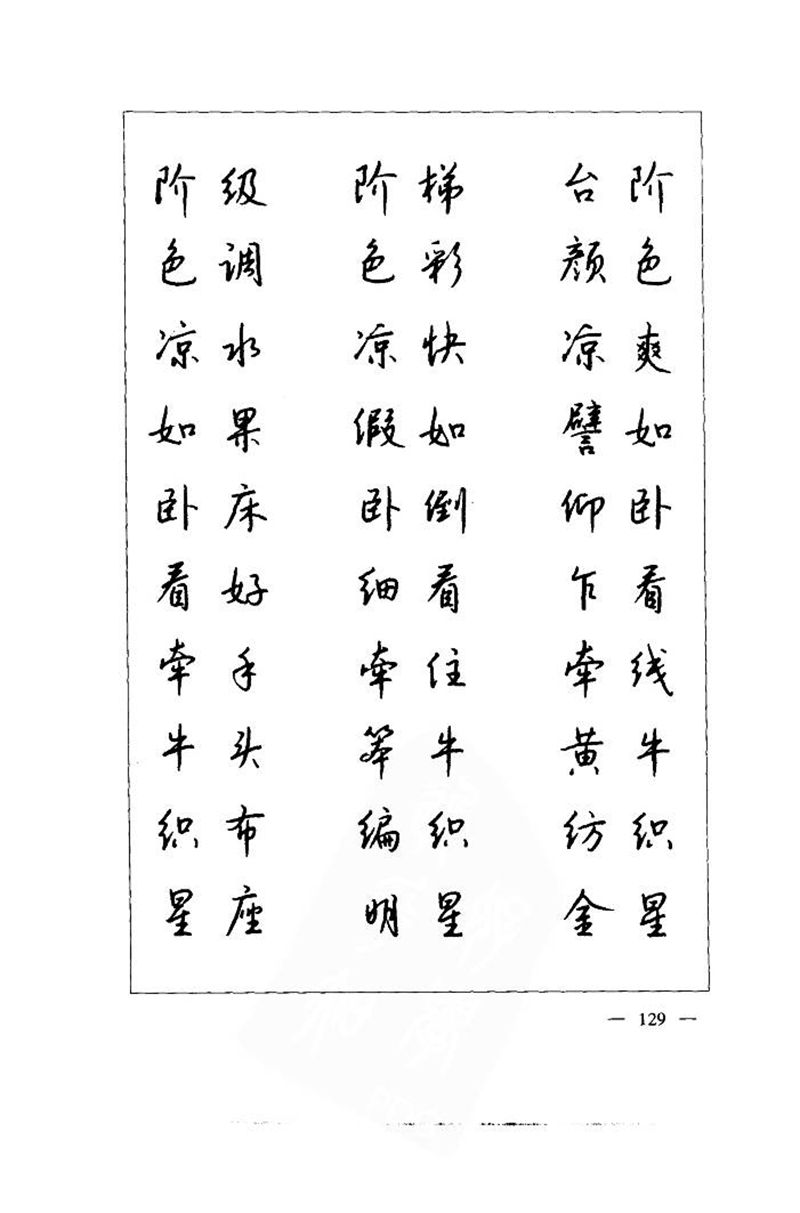 阶级 阶梯 台阶
色调 色彩 颜色
凉水 凉快 凉爽
如果 假如 譬如
卧床 卧倒 仰卧
看好 细看 乍看
牵手 牵住 牵线
牛头 笨牛 黄牛
织布 编织 纺织
星座 明星 金星
— 129 —